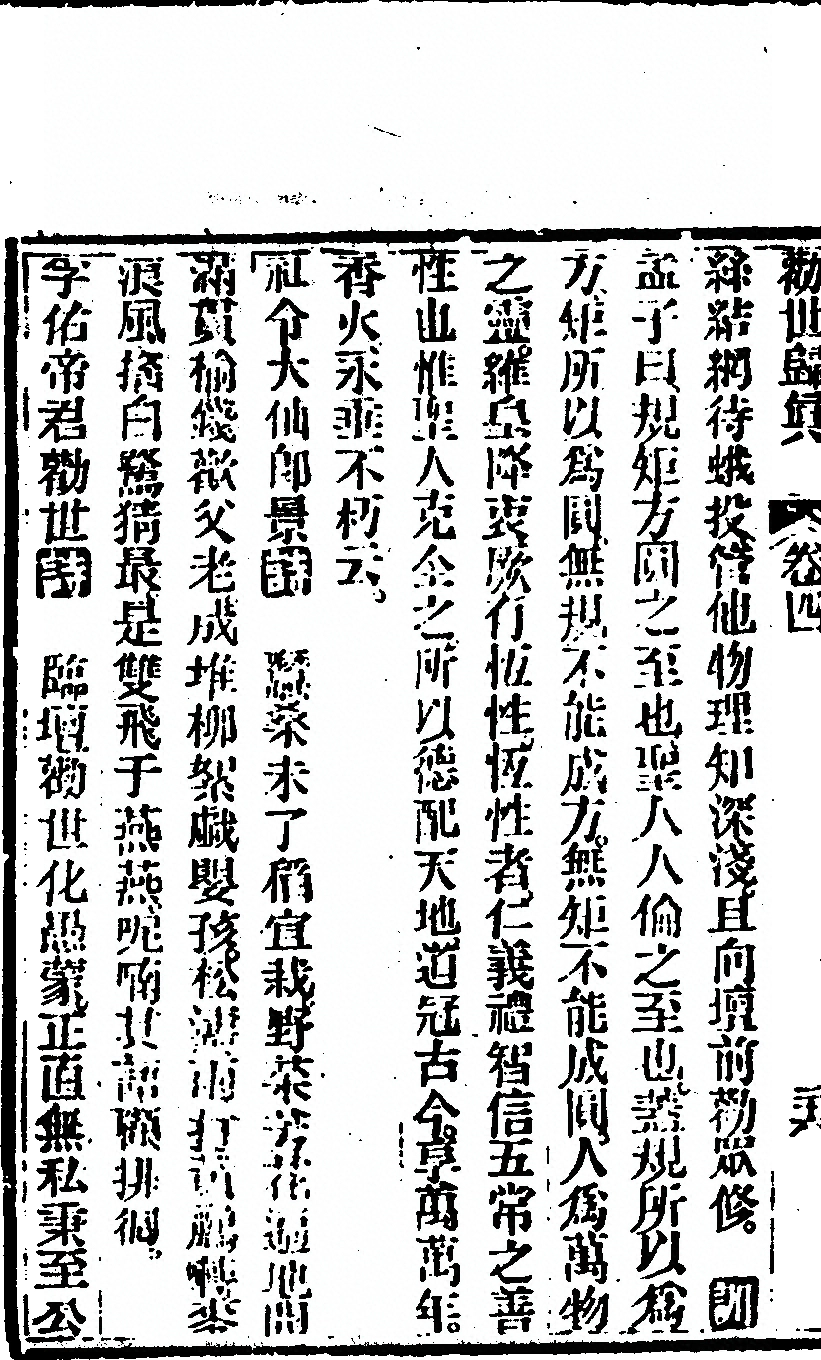 勸世歸眞 卷四
絲結網待蛾投管他物理知深淺且向壇前勸眾修。 訓
孟子曰規矩方圓之至也聖人人倫之至也蓋規所以爲
方矩所以爲圓無規不能成方無矩不能成圓人爲萬物
之靈維皇降衷厥有恆性恆性者仁義禮智信五常之善
性也惟聖人克全之所以德配天地道冠古今享萬萬年。
香火永垂不朽云。
社令大仙郎景詩 蠶桑未了稻宜栽野菜芳花遍地開
滿貫榆錢歡父老成堆柳絮戲嬰孩松濤雨打鶴囀麥
浪風搖白鷺猜最是雙飛于燕燕呢喃共語徘徊。
孚佑帝君勸世詩 臨壇勸世化愚蒙正直無私秉至公